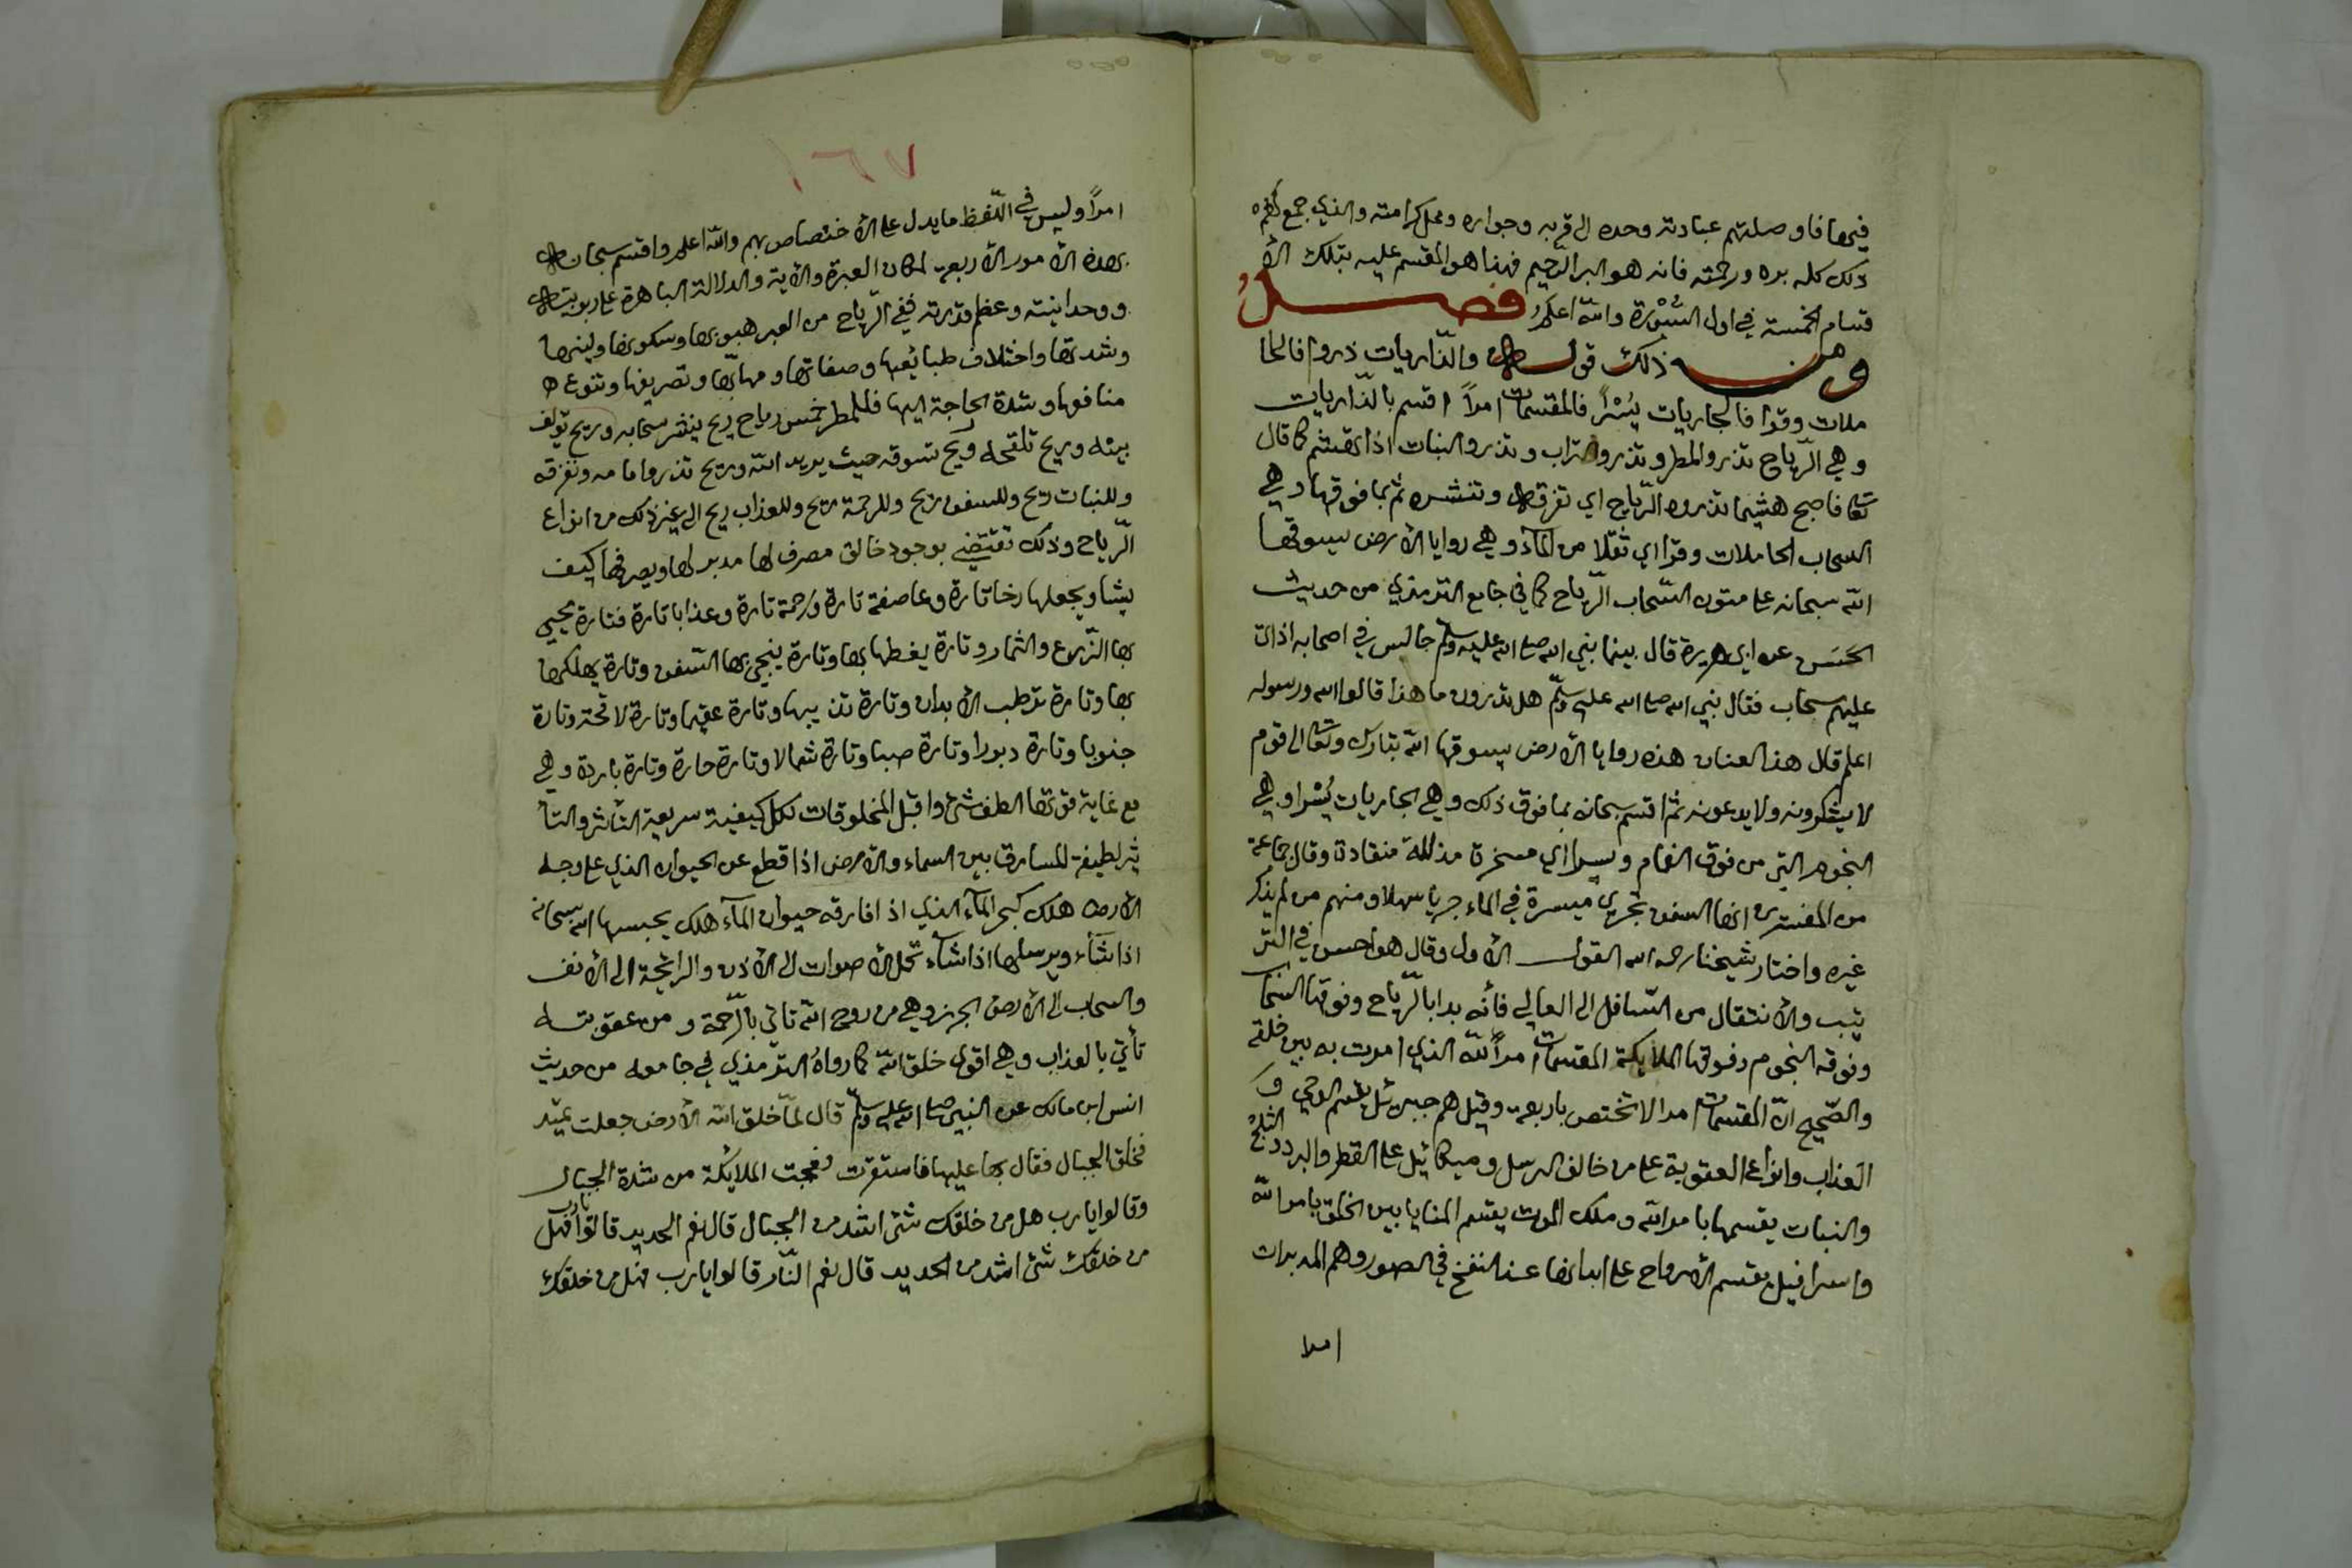 فيها فاوصلتهم عبادته وحده الى قربه وجواره ومحل كرامته والذي جمع لهم
ذلك كله بره ورحمته فانه هو البر الرحيم فهذا هو المقسم عليه بتلك الأ
قسام الخمسة في اول السّورة والله اعلم فصــــل
ومن ذلك قوله والذّاريات ذروا فالحا
ملات وقرا فالجاريات يُسْرًا فالمقسمات امرًا اقسم بالذّاريات
وهي الرّياح تذرو المطر وتذرو التراب وتذرو النبات اذا تهشم كما قال
تعا فاصبح هشيما تذروه الرّياح اي تفرقه وتنشره ثم بما فوقها وهي
السحاب الحاملات وقرا اي ثقلا من المآء وهي روايا الأرض يسوقها
الله سبحانه على متون السّحاب الرّياح كما في جامع الترمذي من حديث
الحَسَن عن ابي هريرة قال بينما نبي الله صلى الله عليه وسلم جالس في اصحابه اذ اتى
عليهم سحاب فقال نبي الله صلى الله عليه وسلّم هل تدرون ما هذا قالوا الله ورسوله
اعلم قال هذا العنان هذه روايا الأرض يسوقها الله تبارك وتعالى الى قوم
لا يشكرونه ولا يدعونه ثم اقسم سبحانه بما فوق ذلك وهي الجاريات يُسْرا وهي
النجوم التي من فوق الغمام ويسرا اي مسخرة مذللة منقادة وقال جماعة
من المفسرين انها السفن تجري ميسرة في الماء جريا سهلا ومنهم من لم يذكر
غيره واختار شيخنا رحمه الله القول الأول وقال هو احسن في التر
تيب والأنتقال من السّافل الى العالي فأنه بدا بالرّياح وفوقها السحاب
وفوقه النجوم وفوقها الملايكة المقسمات امرًا لله الذي امرت به بين خلقه
والصّحيح انّ المقسمات امرا لا تختص باربعة وقيل هم جبرئل يقسم الوحي و
العذاب وانواع العقوبة على من خالف الرسل وميكائيل على القطر والبرد والثلج
والنبات يقسمها بامر الله وملك الموت يقسم المنايا بين الخلق بامر الله
واسرافيل يقسم الأرواح على ابدانها عند النفخ في الصور وهم المدبرات
امرا
١٦٧
امرًا وليس في اللّفظ ما يدل على الأختصاص بهم والله اعلم واقسم سبحانه
بهذه الأمور الأربعة لمكان العبرة والأية والدلالة الباهرة على ربوبيته
ووحدانيته وعظم قدرته ففي الرّياح من العبر هبوبها وسكونها ولينها
وشدتها واختلاف طبائعها وصفاتها ومهابّها وتصريفها وتنوع
منافعها وشدة الحاجة اليها فللمطر خمس رياح ريح ينشر سحابه وريح يؤلف
بينه وريح تلقحه وريح تسوقه حيث يريد الله وريح تذروا مامه وتفرقه
وللنبات ريح وللسفن ريح وللرحمة ريح وللعذاب ريح الى غير ذلك من انواع
الرّياح وذلك تقتضي بوجود خالق مصرف لها مدبر لها ويصرفها كيف
يشا ويجعلها رخا تارة وعاصفة تارة ورحمة تارة وعذابا تارة فتارة يحيي
بها الزّروع والثمار وتارة يغطيها بها وتارة ينجي بها السّفن وتارة يهلكها
بها وتارة ترطب الأبدان وتارة تذيبها وتارة عقيما وتارة لاقحة وتارة
جنوبا وتارة دبورا وتارة صبا وتارة شمالا وتارة حارة وتارة باردة وهي
مع غاية قوتها الطف شئ واقبل المخلوقات لكل كيفية سريعة التأثر والتأ
ثير لطيفة المسارق بين السماء والأرض اذا قطع عن الحيوان الذي على وجه
الأرض هلك كبحر المآء الذي اذا فارقه حيوان المآء هلك يحبسها الله سبحانه
اذا شآء ويرسلها اذا شآء تحمل الأصوات الى الأذن والرائحة الى الأنف
والسحاب الى الأرض الجرز وهي من روح الله تاتي بالرّحمة ومن عقوبته
تأتي بالعذاب وهي اقوى خلق الله كما رواهُ الترمذي في جامعه من حديث
انس ابن مالك عن النبي صلى الله عليه وسلّم قال لمّا خلق الله الأرض جعلت تميد
فخلق الجبال فقال بها عليها فاستقرت فعجبت الملائكة من شدة الجبال
وقالوا يا رب هل من خلقك شئ اشد من الجبال قال نعم الحديد قالوا يا رب فهل
من خلقك شئ اشد من الحديد قال نعم النّار قالوا يا رب فهل من خلقك